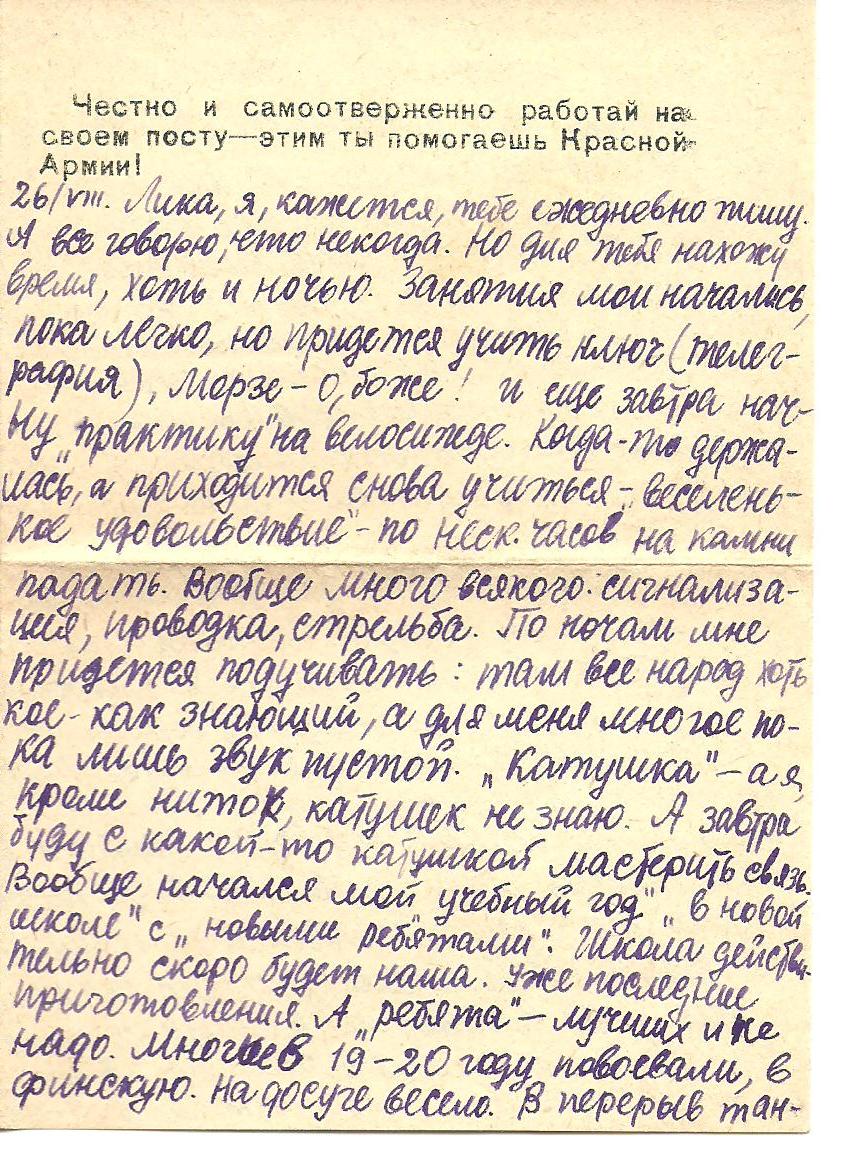 Честно и самоотверженно работай на
своем посту—этим ты помогаешь Красной
Армии!
26/VIII. Лика, я, кажется, тебе ежедневно пишу.
А все говорю, что некогда. Но для тебя нахожу
время, хоть и ночью. Занятия мои начались,
пока легко, но придется учить ключ (телег-
рафия), Морзе – О, боже! и еще завтра нач-
ну „практику" на велосипеде. Когда-то держа-
лась, а приходится снова учиться – „веселень-
кое удовольствие" – по неск. часов на камни
падать. Вообще много всякого: сигнализа-
ция, проводка, стрельба. По ночам мне
придется подучивать: там все народ хоть
кое-как знающий, а для меня многое по-
ка лишь звук пустой. „Катушка" – а я,
кроме ниток, катушек не знаю. А завтра
буду с какой-то катушкой мастерить связь.
Вообще начался мой учебный год" „в новой
школе" с „новыми ребятами". Школа действи-
тельно скоро будет наша. Уже последние
приготовления. А „ребята" – лучших и не
надо. Многие в 19–20 году повоевали, в
финскую. На досуге весело. В перерыв тан-